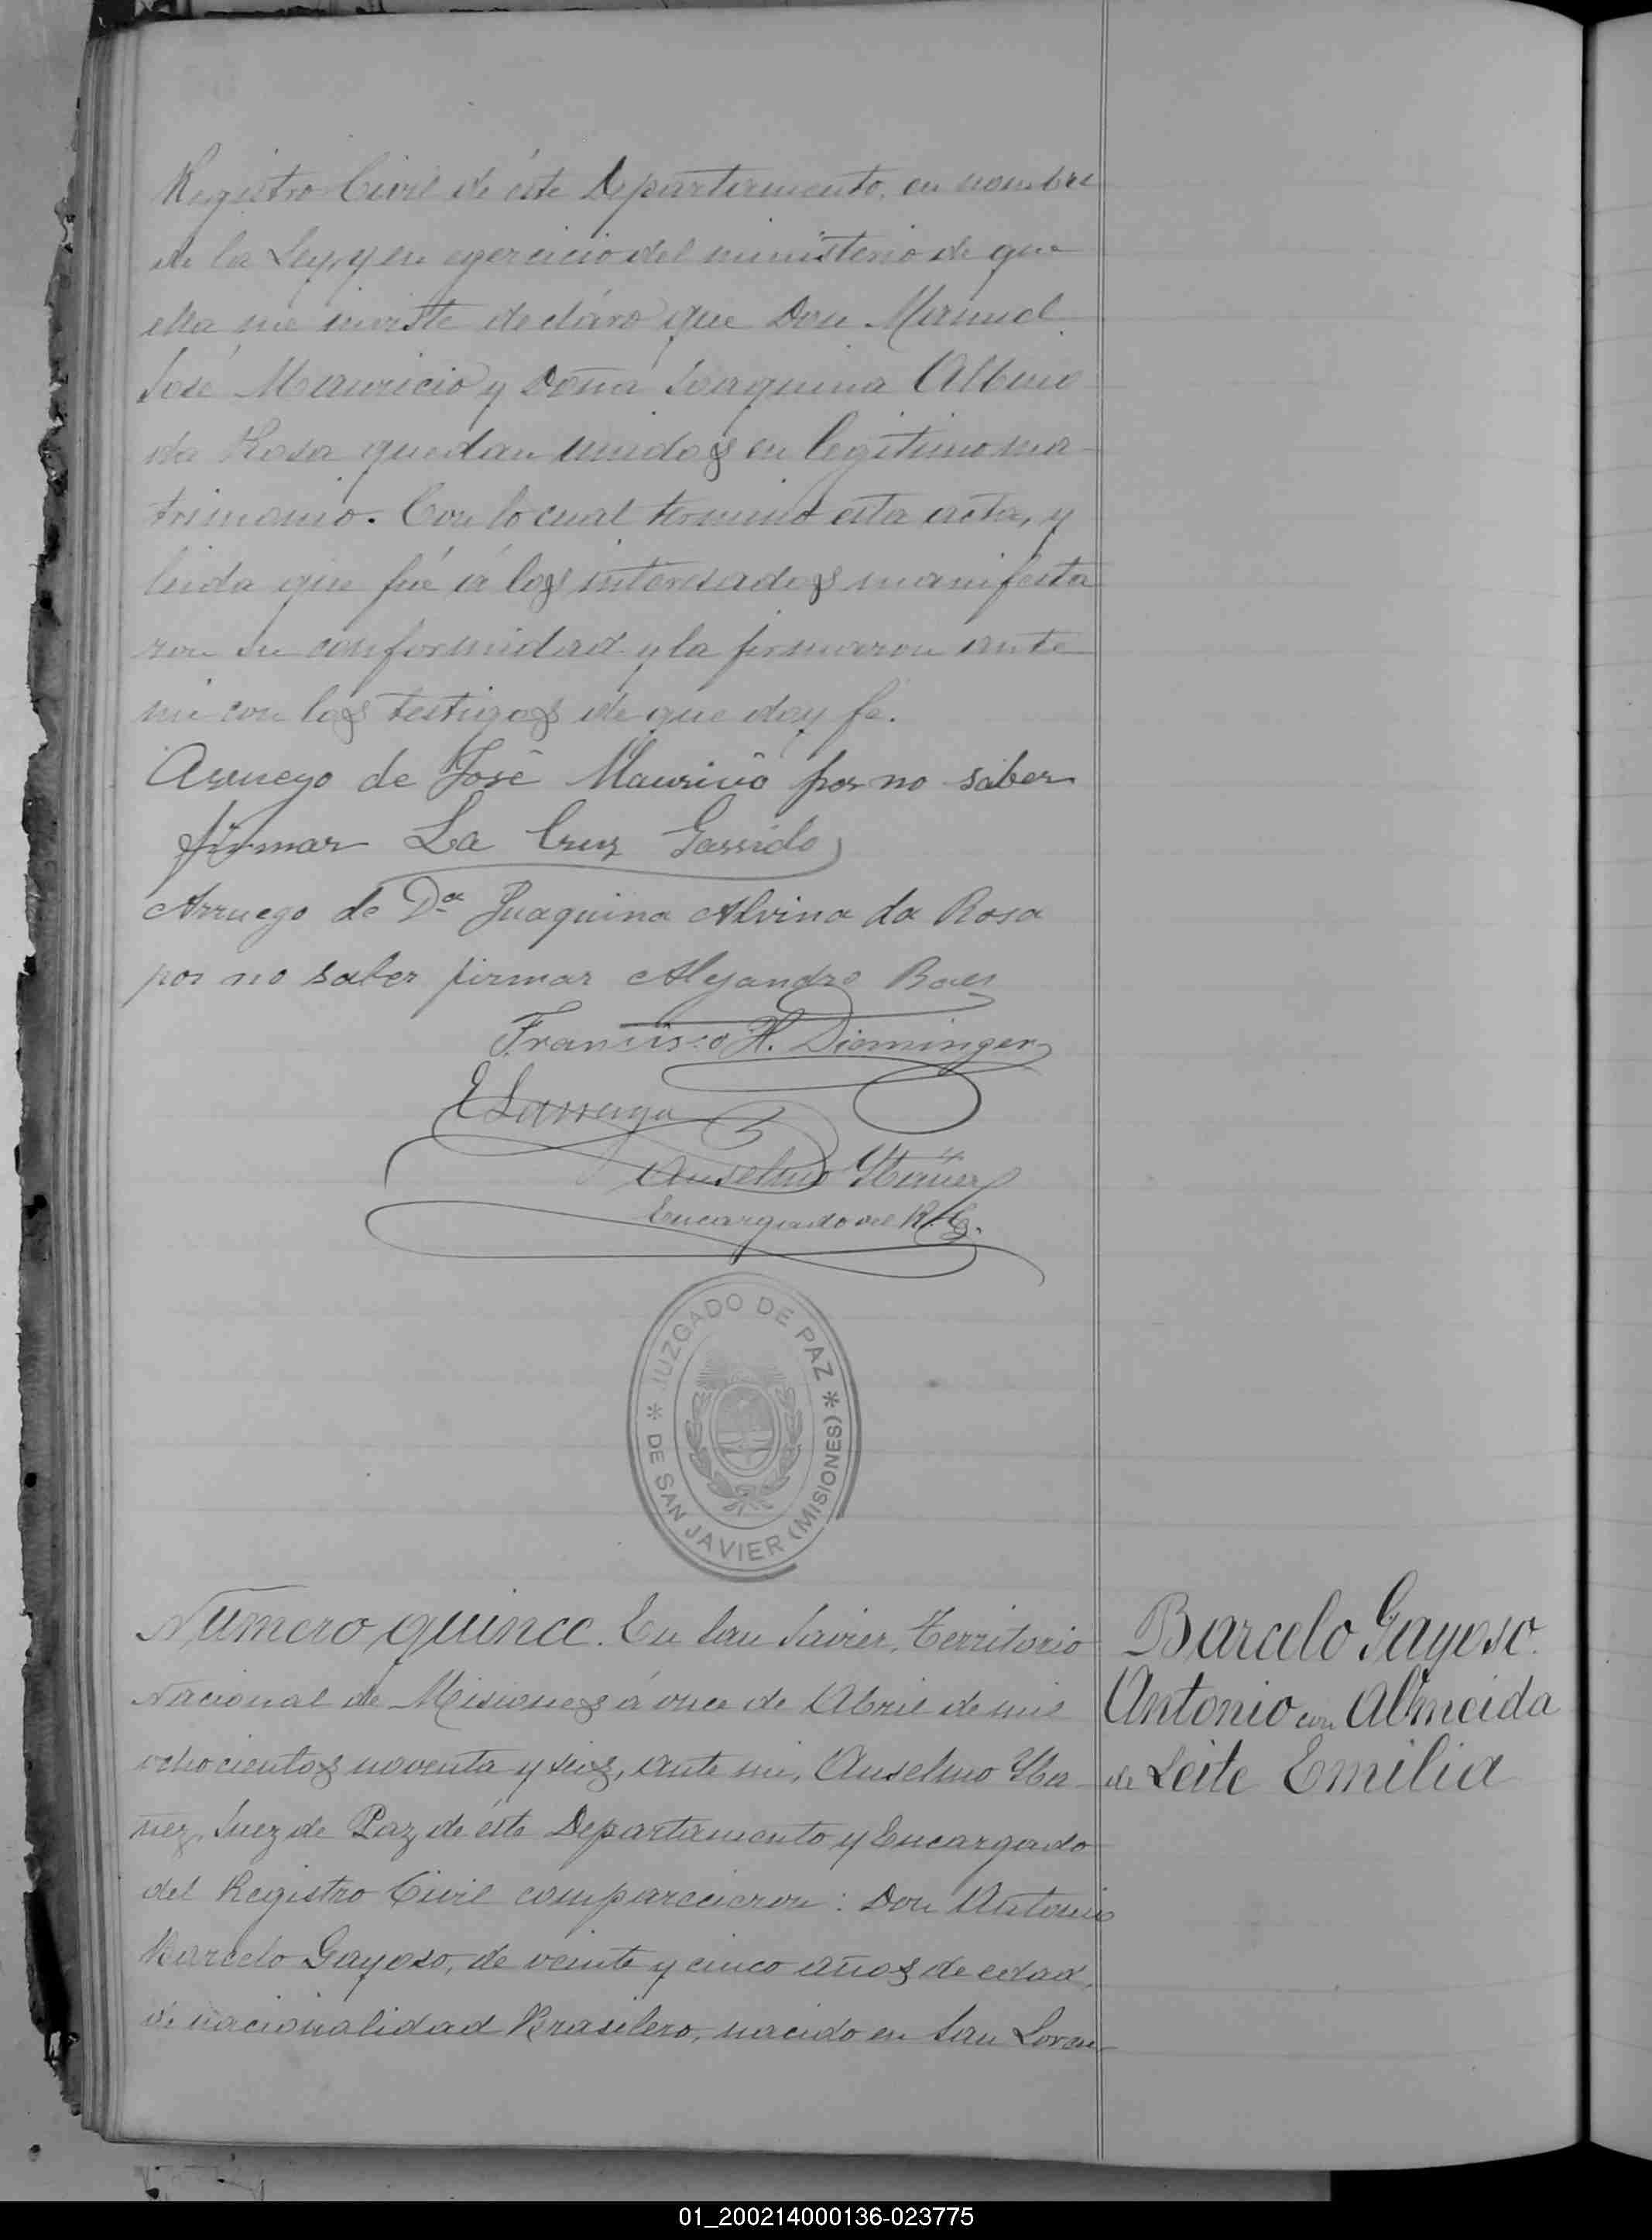 Registro Civil de éste Departamento, en nombre
de la Ley, y en egercicio del ministerio de que
ella me inviste decláro que Don Manuel
José Mauricio y Doña Joaquina Albino
da Rosa quedan unidos en legítimo ma-
trimonio. Con lo cual terminó esta acta, y
leida que fué á los interesados manifesta
ron su conformidad y la firmaron ante
mi con los testigos de que doy fé.
Arruego de José Mauricio por no saber
firmar La Cruz Garrido
Arruego de Da Juaquina Alvina da Rosa
por no saber firmar Alejandro Baes
Francisco H. Dieminger
E Larraya
Anselmo Ybáñez
Encargado del R. C.
* JUZGADO DE PAZ *
DE SAN JAVIER (MISIONES)
Número quince. En San Javier, Territorio
Nacional de Misiones á once de Abril de mil
ochocientos noventa y seis, ante mi, Anselmo Yba-
ñez, Juez de Paz de éste Departamento y Encargado
del Registro Civil comparecieron: Don Antonio
Barcelo Gayoso, de veinte y cinco años de edad,
de nacionalidad Brasilero, nacido en San Loren-
Barcelo Gayoso.
Antonio con Almeida
de Leite Emilia
01_200214000136-023775